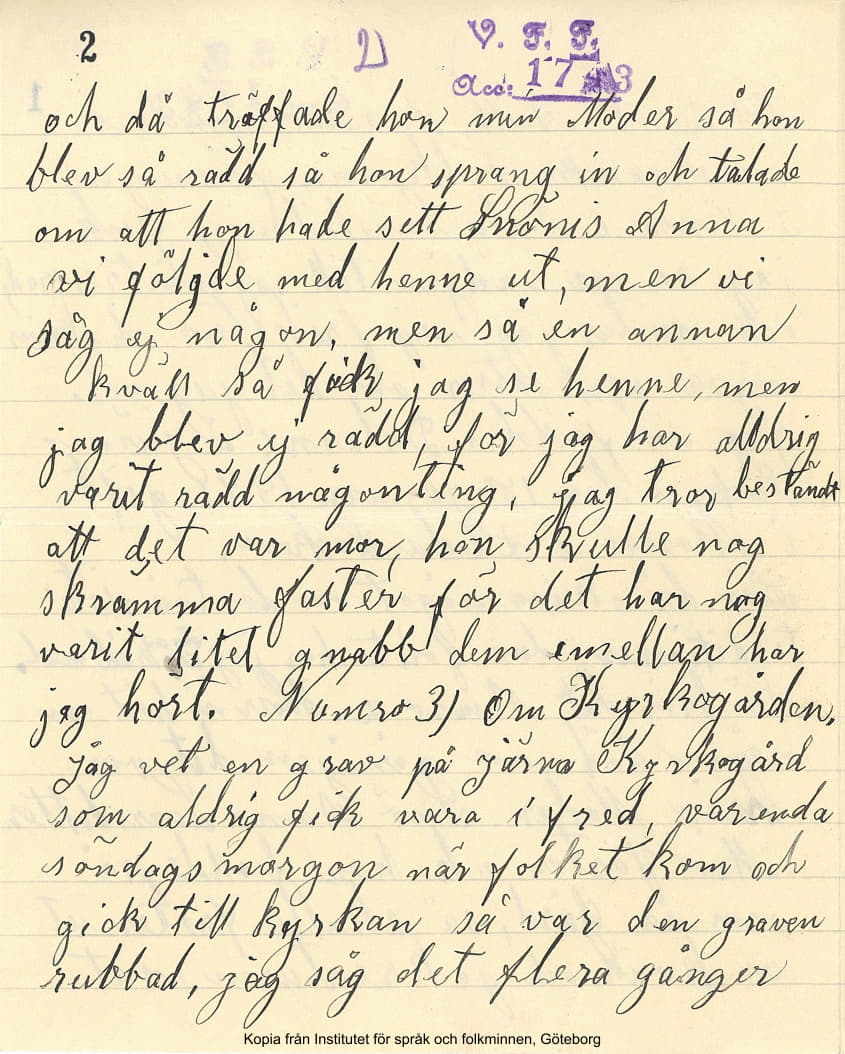 2 2) V. F. F.
Acc: 17 3
och då träffade hon min Moder så hon
blev så rädd så hon sprang in och talade
om att hon hade sett Snönis Anna
vi följde med henne ut, men vi
såg ej någon, men så en annan
kväll så fick jag se henne, men
jag blev ej rädd, för jag har alldrig
varit rädd någonting, jag tror beståndt
att det var mor, hon skulle nog
skrämma faster för det har nog
varit litet gnabb dem emellan har
jag hört. Numro 3) Om Kyrkogården.
Jag vet en grav på järna Kyrkogård
som aldrig fick vara i fred, varenda
söndagsmorgon när folket kom och
gick till kyrkan så var den graven
rubbad, jag såg det flera gånger
Kopia från Institutet för språk och folkminnen, Göteborg